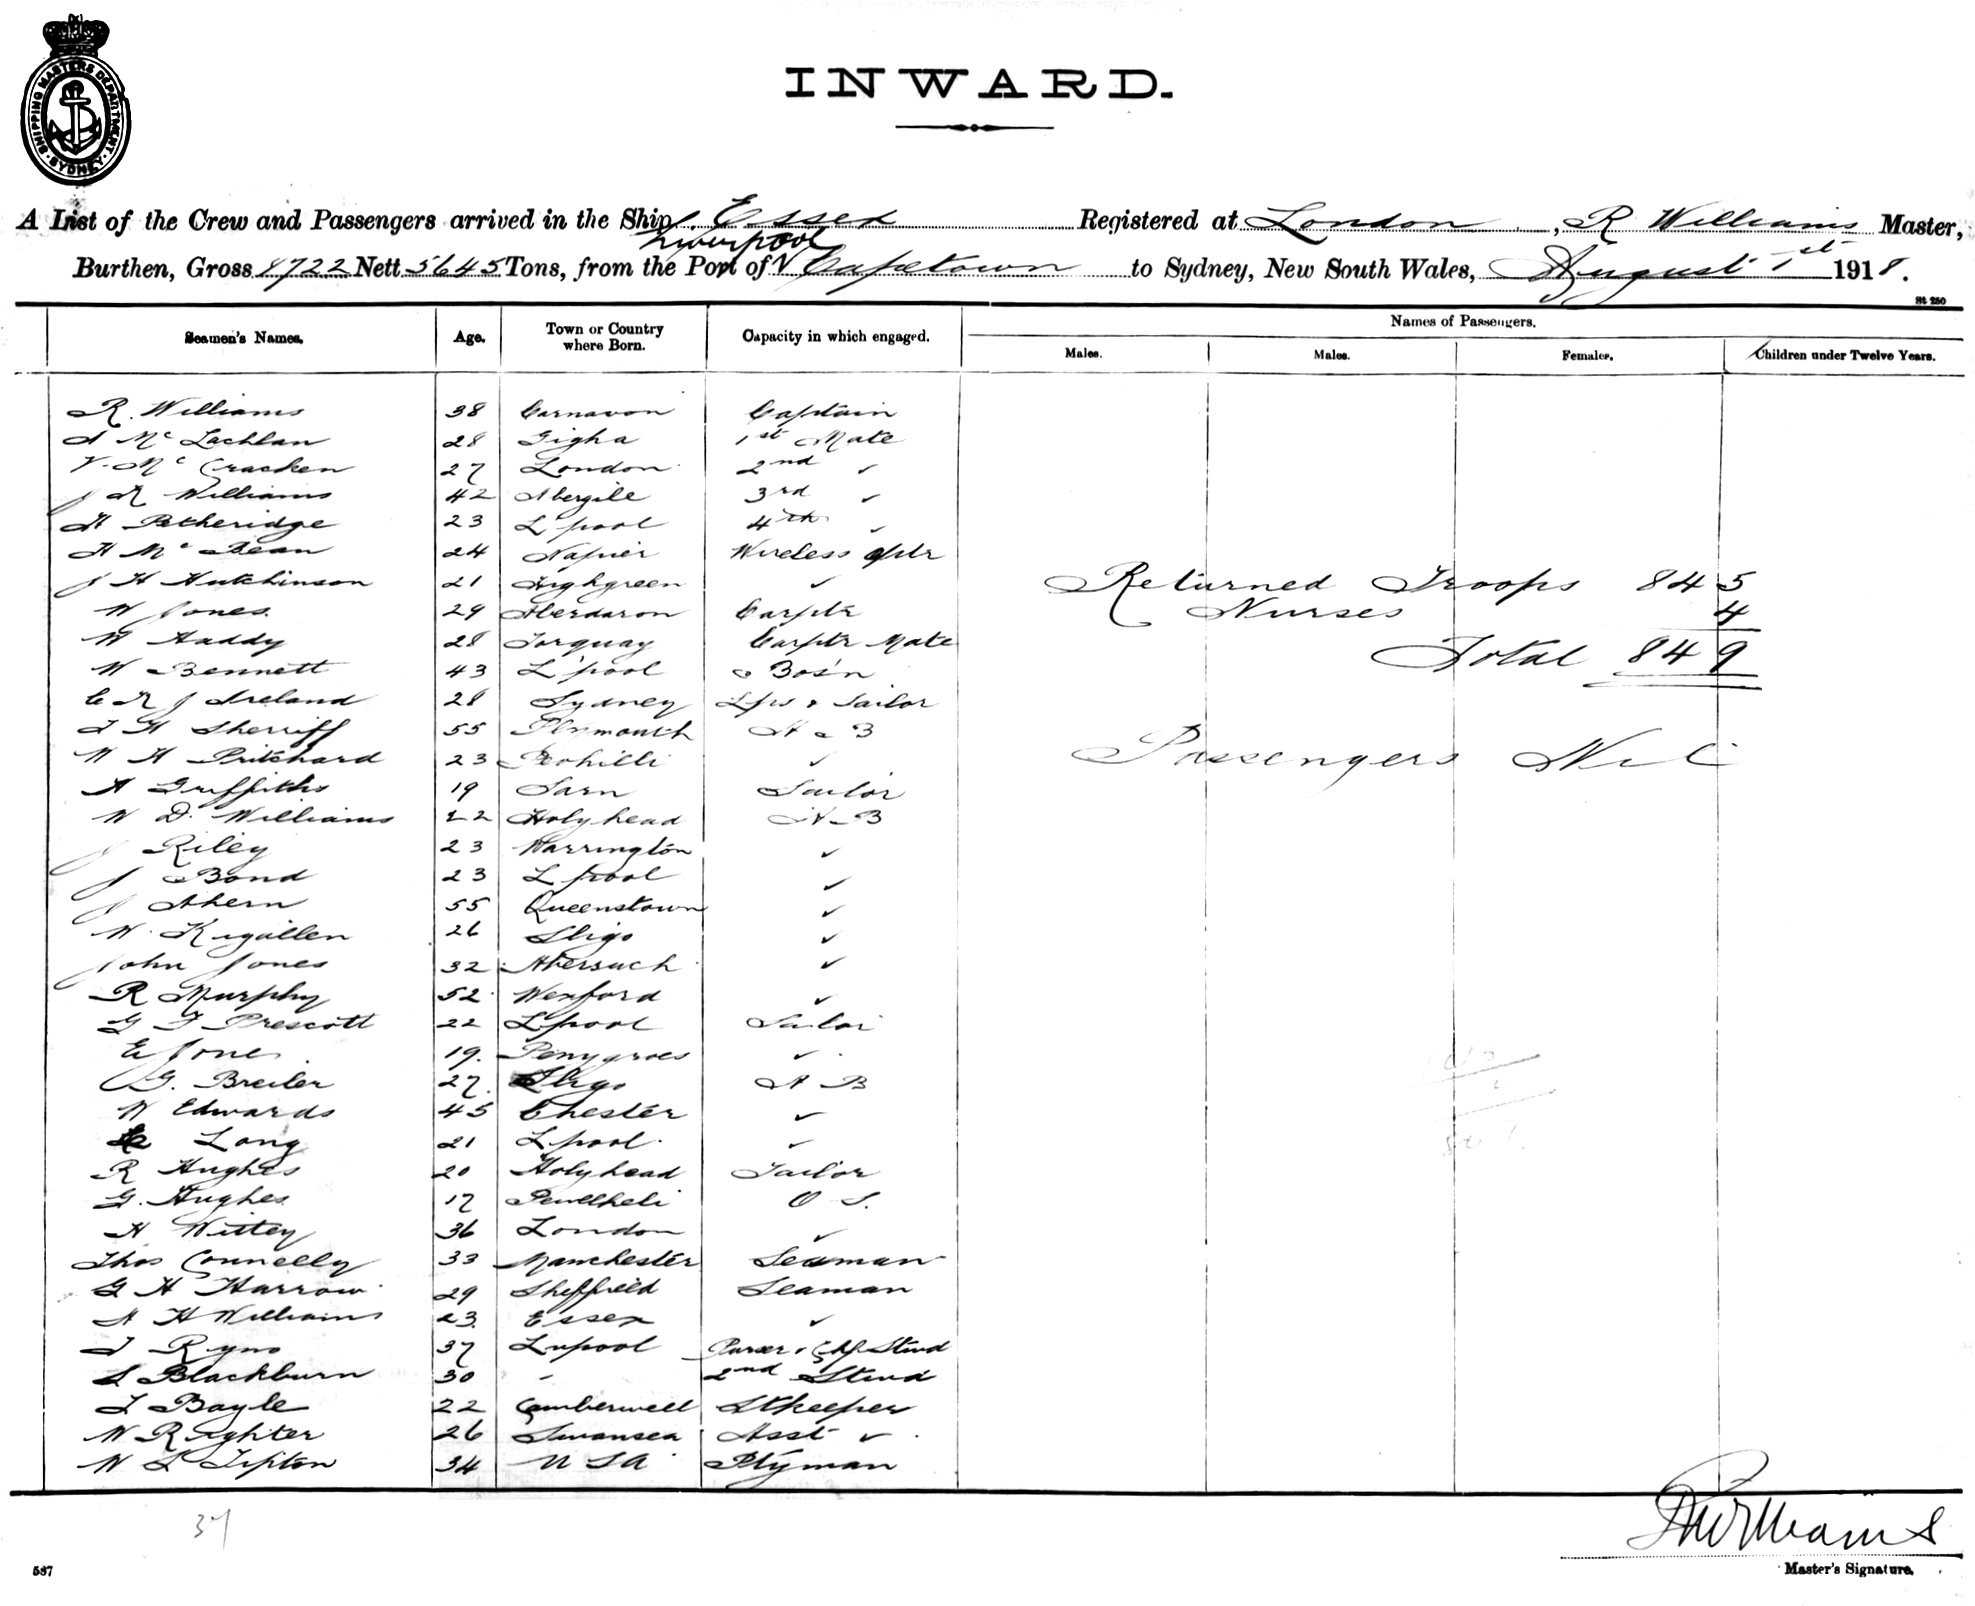 SHIPPING MASTERS DEPARTMENT · SYDNEY ·
INWARD.
A List of the Crew and Passengers arrived in the Ship Essex Registered at London, R Williams Master,
Liverpool
Burthen, Gross 8722 Nett 5645 Tons, from the Port of Capetown to Sydney, New South Wales, August 1st 1918.
St 250
Seamen's Names. Age. Town or Country where Born. Capacity in which engaged. Names of Passengers.
Males. Males. Females. Children under Twelve Years.
R. Williams 38 Carnavon Captain
A Mc Lachlan 28 Gigha 1st Mate
V. Mc Cracken 27 London 2nd ✓
J R Williams 42 Abergele 3rd ✓
H Petheridge 23 L'pool 4th ✓
H Mc Bean 24 Napier Wireless Optr
J H Hutchinson 21 Highgreen ✓
Returned Troops 845
W Jones. 29 Aberdaron Carptr
Nurses 4
W Haddy 28 Torquay Carptr Mate
Total 849
W Bennett 43 L'pool Bos'n
C R J Ireland 28 Sydney Lps & Sailor
T H Sherriff 55 Plymouth A B
W H Pritchard 23 ✓
Passengers Nil
A Griffiths 19 Sarn Sailor
W D. Williams 22 Holyhead A B
J Riley 23 Warrington ✓
J Bond 23 L'pool ✓
J Ahern 55 Queenstown ✓
W. Kigallen 26 Sligo ✓
John Jones 32 Abersuch ✓
R Murphy 52 Wexford ✓
G T Prescott 22 L'pool Sailor
E Jones 19. Penygroes ✓
G. Breiler 27. Sligo A B
W Edwards 45 Chester ✓
Long 21 L'pool. ✓
R Hughes 20 Holyhead Sailor
G. Hughes 17 Pewlheli O S.
H Wittey 36 London ✓
Thos Connelly 33 Manchester Seaman
G H Harrow 29 Sheffield Seaman
A H Williams 23. Essex ✓
T Ryno 37 L'pool Purser & Chf Stwd
S Blackburn 30 - 2nd Stwd
T Bayle 22 Camberwell Stkeeper
W Righter 26 Swansea Asst ✓
W L Tipton 34 USA Ptyman
37
R Williams
587
Master's Signature.